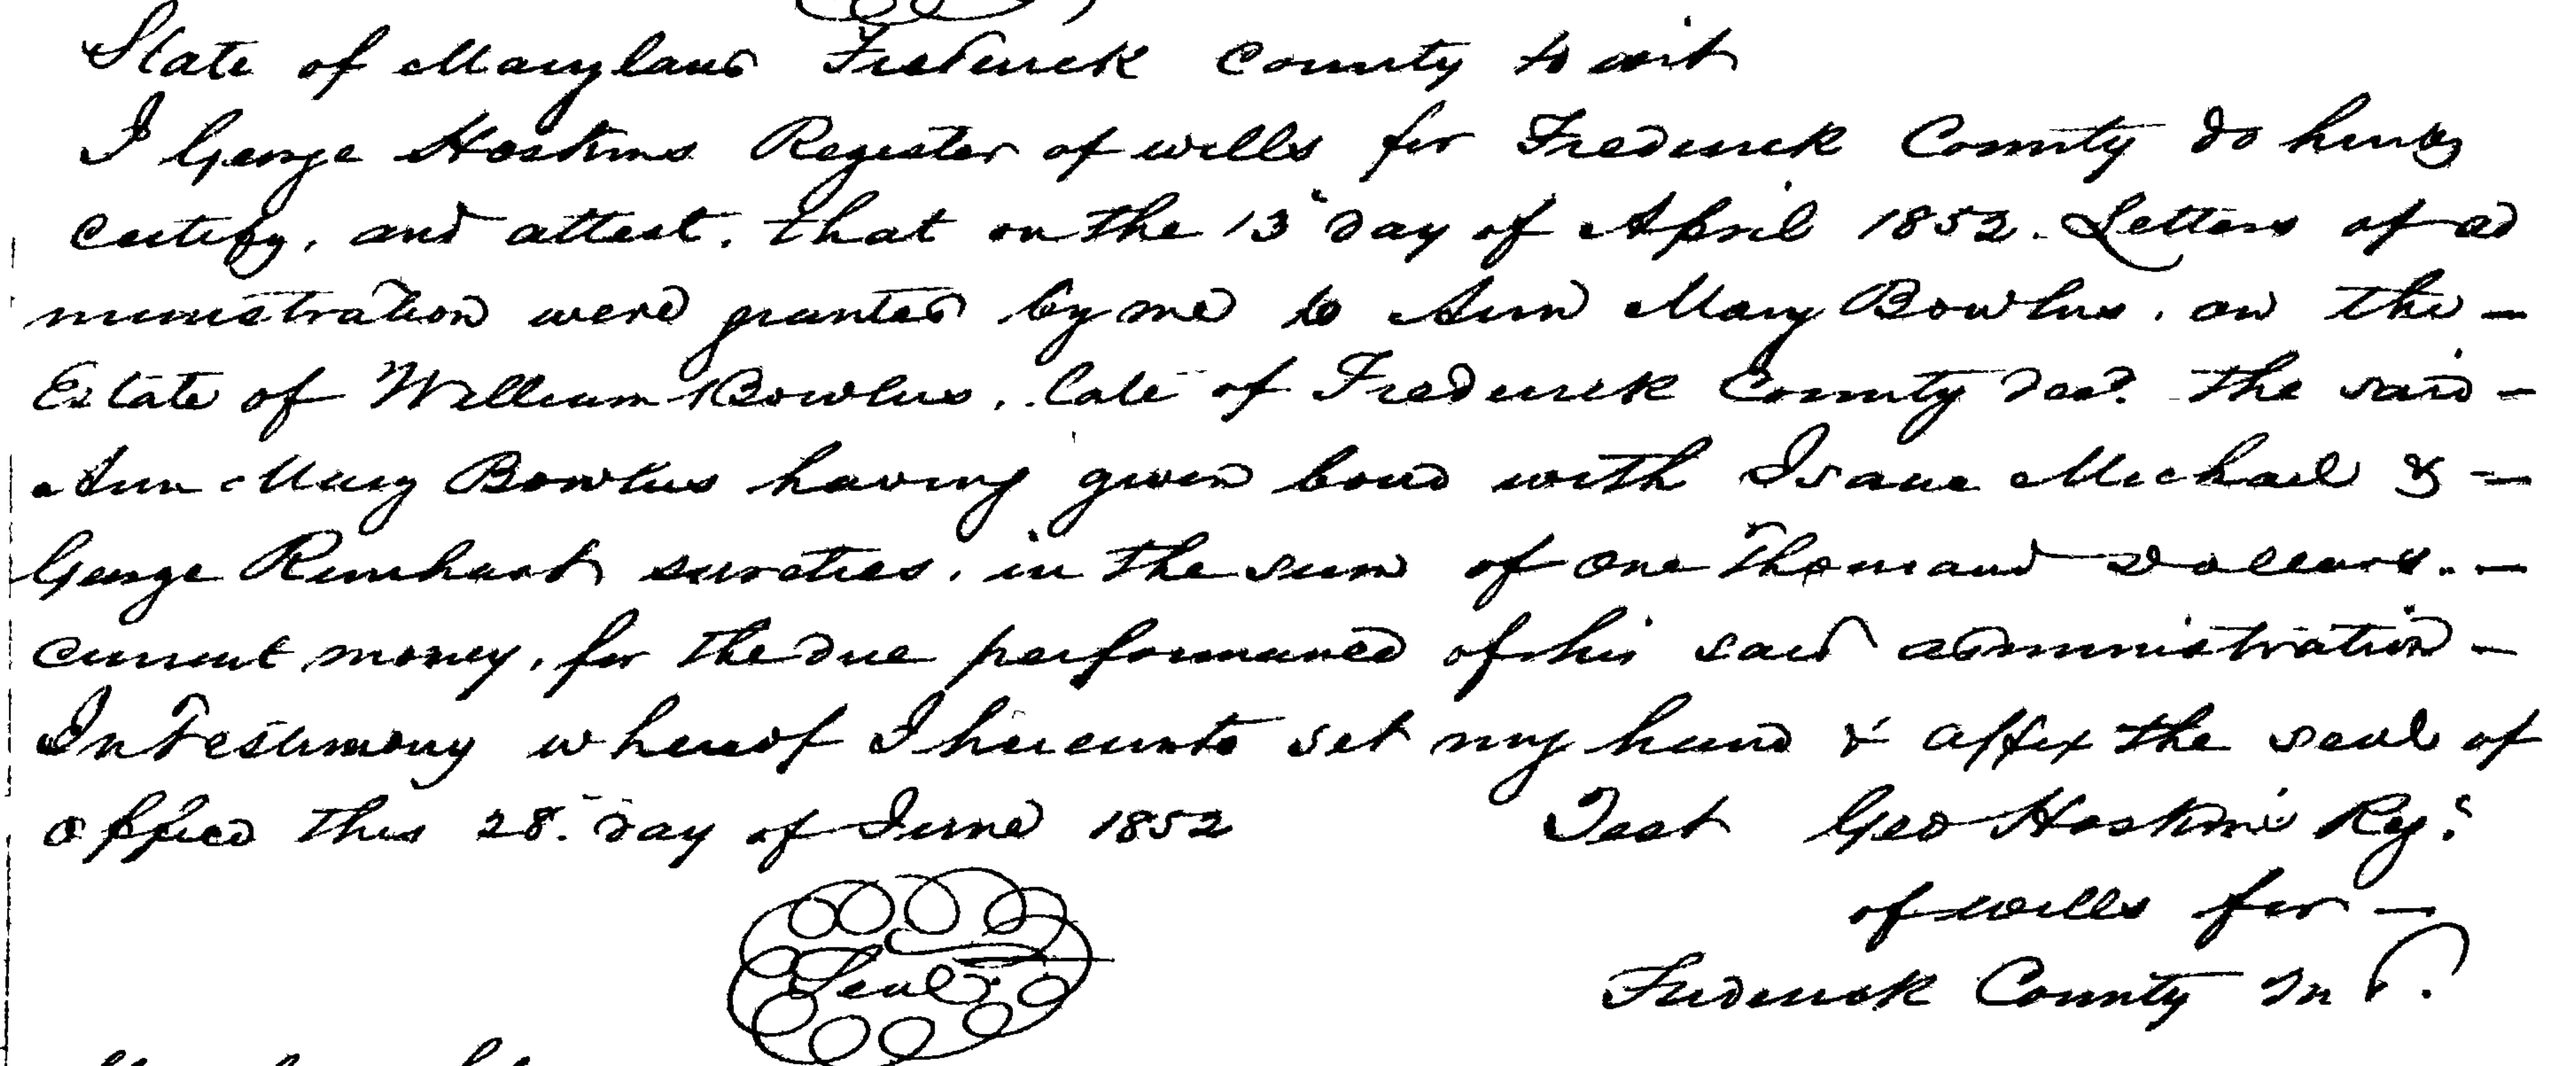 State of Maryland Frederick County to wit
I George Hoskins Register of wills for Frederick County do hereby
certify, and attest, that on the 13" day of April 1852. Letters of ad
ministration were granted by me to Ann Mary Bowlus, on the -
Estate of William Bowlus, late of Frederick County decd. the said -
Ann Mary Bowlus having given bond with Isaac Michael & -
George Rinehart sureties, in the sum of One Thousand Dollars. -
current money, for the due performance of his said administration -
In Testimony whereof I hereunto set my hand & affix the seal of
office this 28" day of June 1852 Test Geo Hoskins Regr
of wills for -
Seal Frederick County Md.